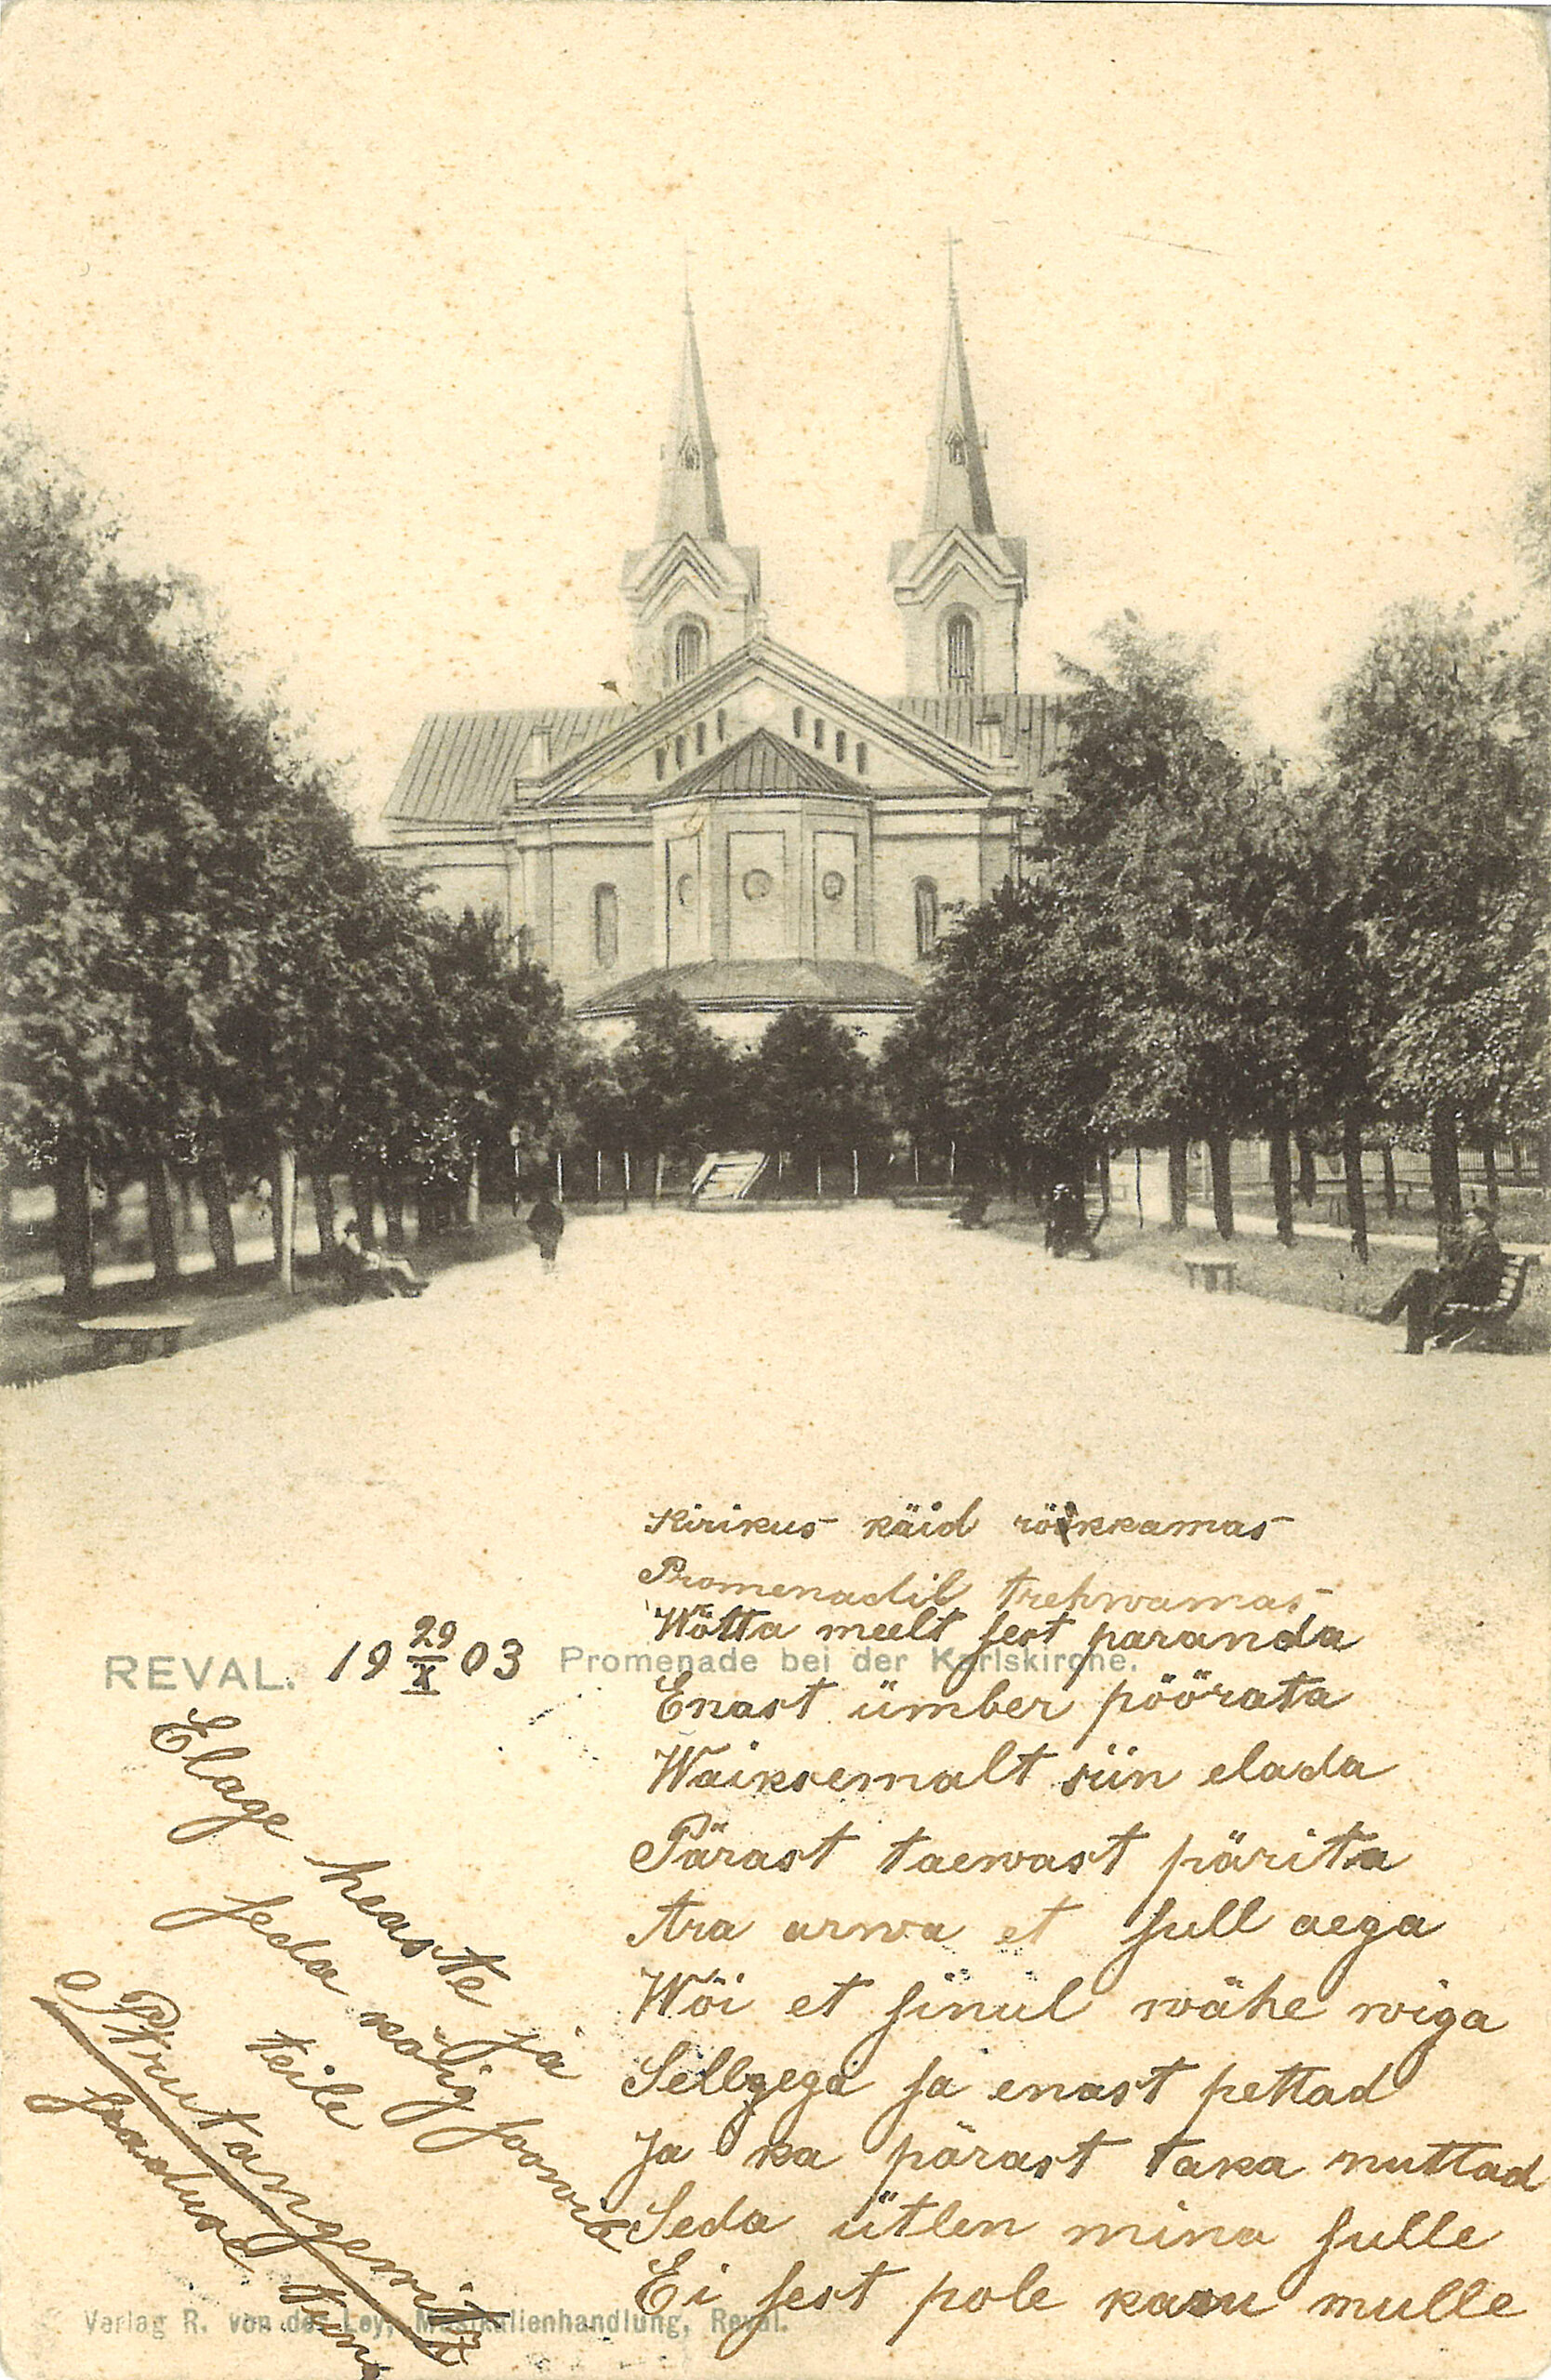 Kirikus käid röökkamas
Promenadil trehwamas
Wötta meelt sest paranda
Enast ümber pöörata
Waiksemalt siin elada
Pärast taewast pärita
Ära arwa et sull aega
Wöi et sinul wähe wiga
Sellgega sa enast pettad
Ja ka pärast taka nuttad
Seda ütlen mina sulle
Ei sest pole kasu mulle
REVAL. 19 29/X 03 Promenade bei der Karlskirche.
Elage heaste ja
seda kõig soowib
teile
saaduse
Verlag R. von der Ley, Musikalienhandlung, Reval.